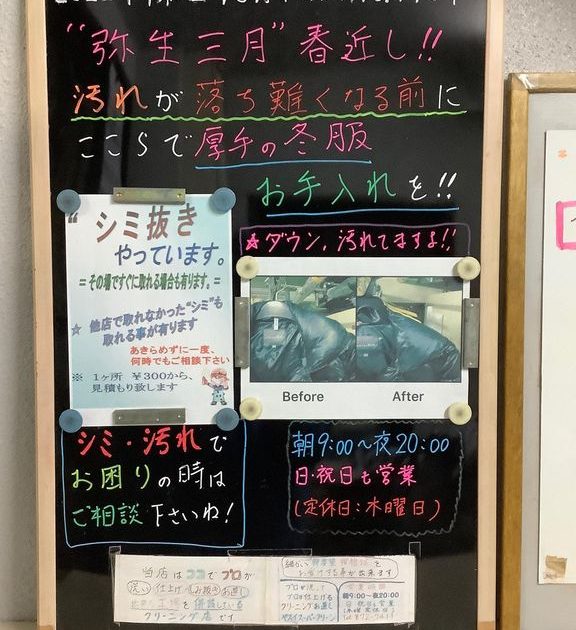 “弥生三月” 春近し!!
汚れが落ち難くなる前に
ここらで厚手の冬服
お手入れを!!
“シミ抜き
やっています。
=その場ですぐに取れる場合も有ります。=
★ 他店で取れなかった“シミ”も
取れる事が有ります
あきらめずに一度、
何時でもご相談下さい
※ 1ヶ所 ¥300から、
見積もり致します
☆ダウン,汚れてますよ!!
Before After
シミ・汚れで
お困りの時は
ご相談下さいね!
朝9:00〜夜20:00
日・祝日も営業
(定休日:木曜日)
当店はココでプロが
洗い 仕上げ
クリーニング店です
プロが洗い
プロが仕上げる
朝9:00〜夜20:00